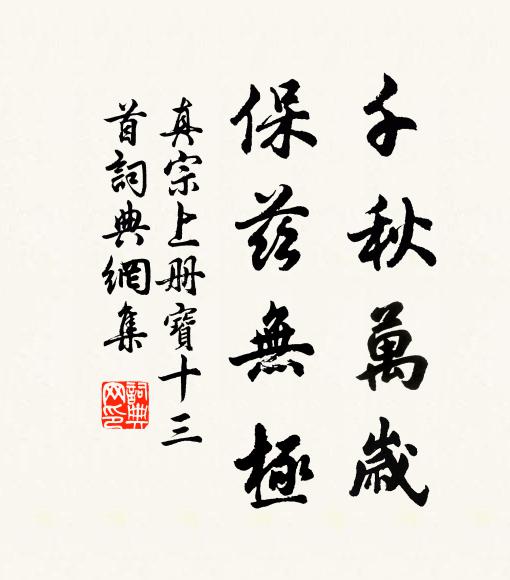 千秋萬歲
保茲無極
真宗上册寶十三
首詞典網集
詞典
网印